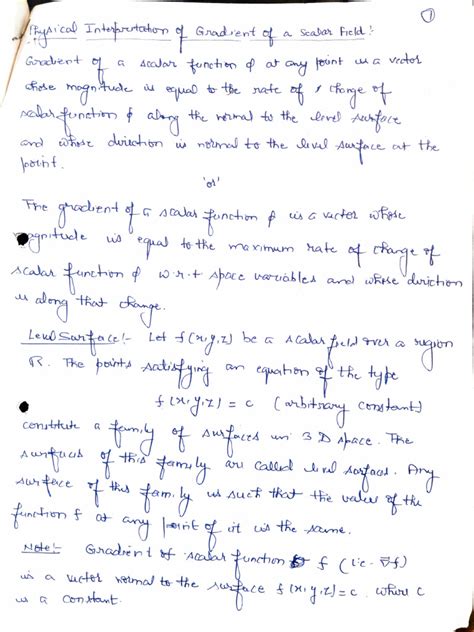 ①
Physical Interpretation of Gradient of a Scalar Field:
Gradient of a scalar function ϕ at any point is a vector
whose magnitude is equal to the rate of change of
scalar function ϕ along the normal to the level surface
and whose direction is normal to the level surface at the
point.
'or'
The gradient of a scalar function ϕ is a vector whose
magnitude is equal to the maximum rate of change of
scalar function ϕ w.r.t space variables and whose direction
is along that change.
Level Surface:- Let f(x,y,z) be a scalar field over a region
R. The points satisfying an equation of the type
f(x,y,z) = c (arbitrary constant)
constitute a family of surfaces in 3D space. The
surfaces of this family are called level surfaces. Any
surface of this family is such that the value of the
function f at any point of it is the same.
Note:- Gradient of scalar function f (i.e. ∇f)
is a vector normal to the surface f(x,y,z)=c where c
is a constant.